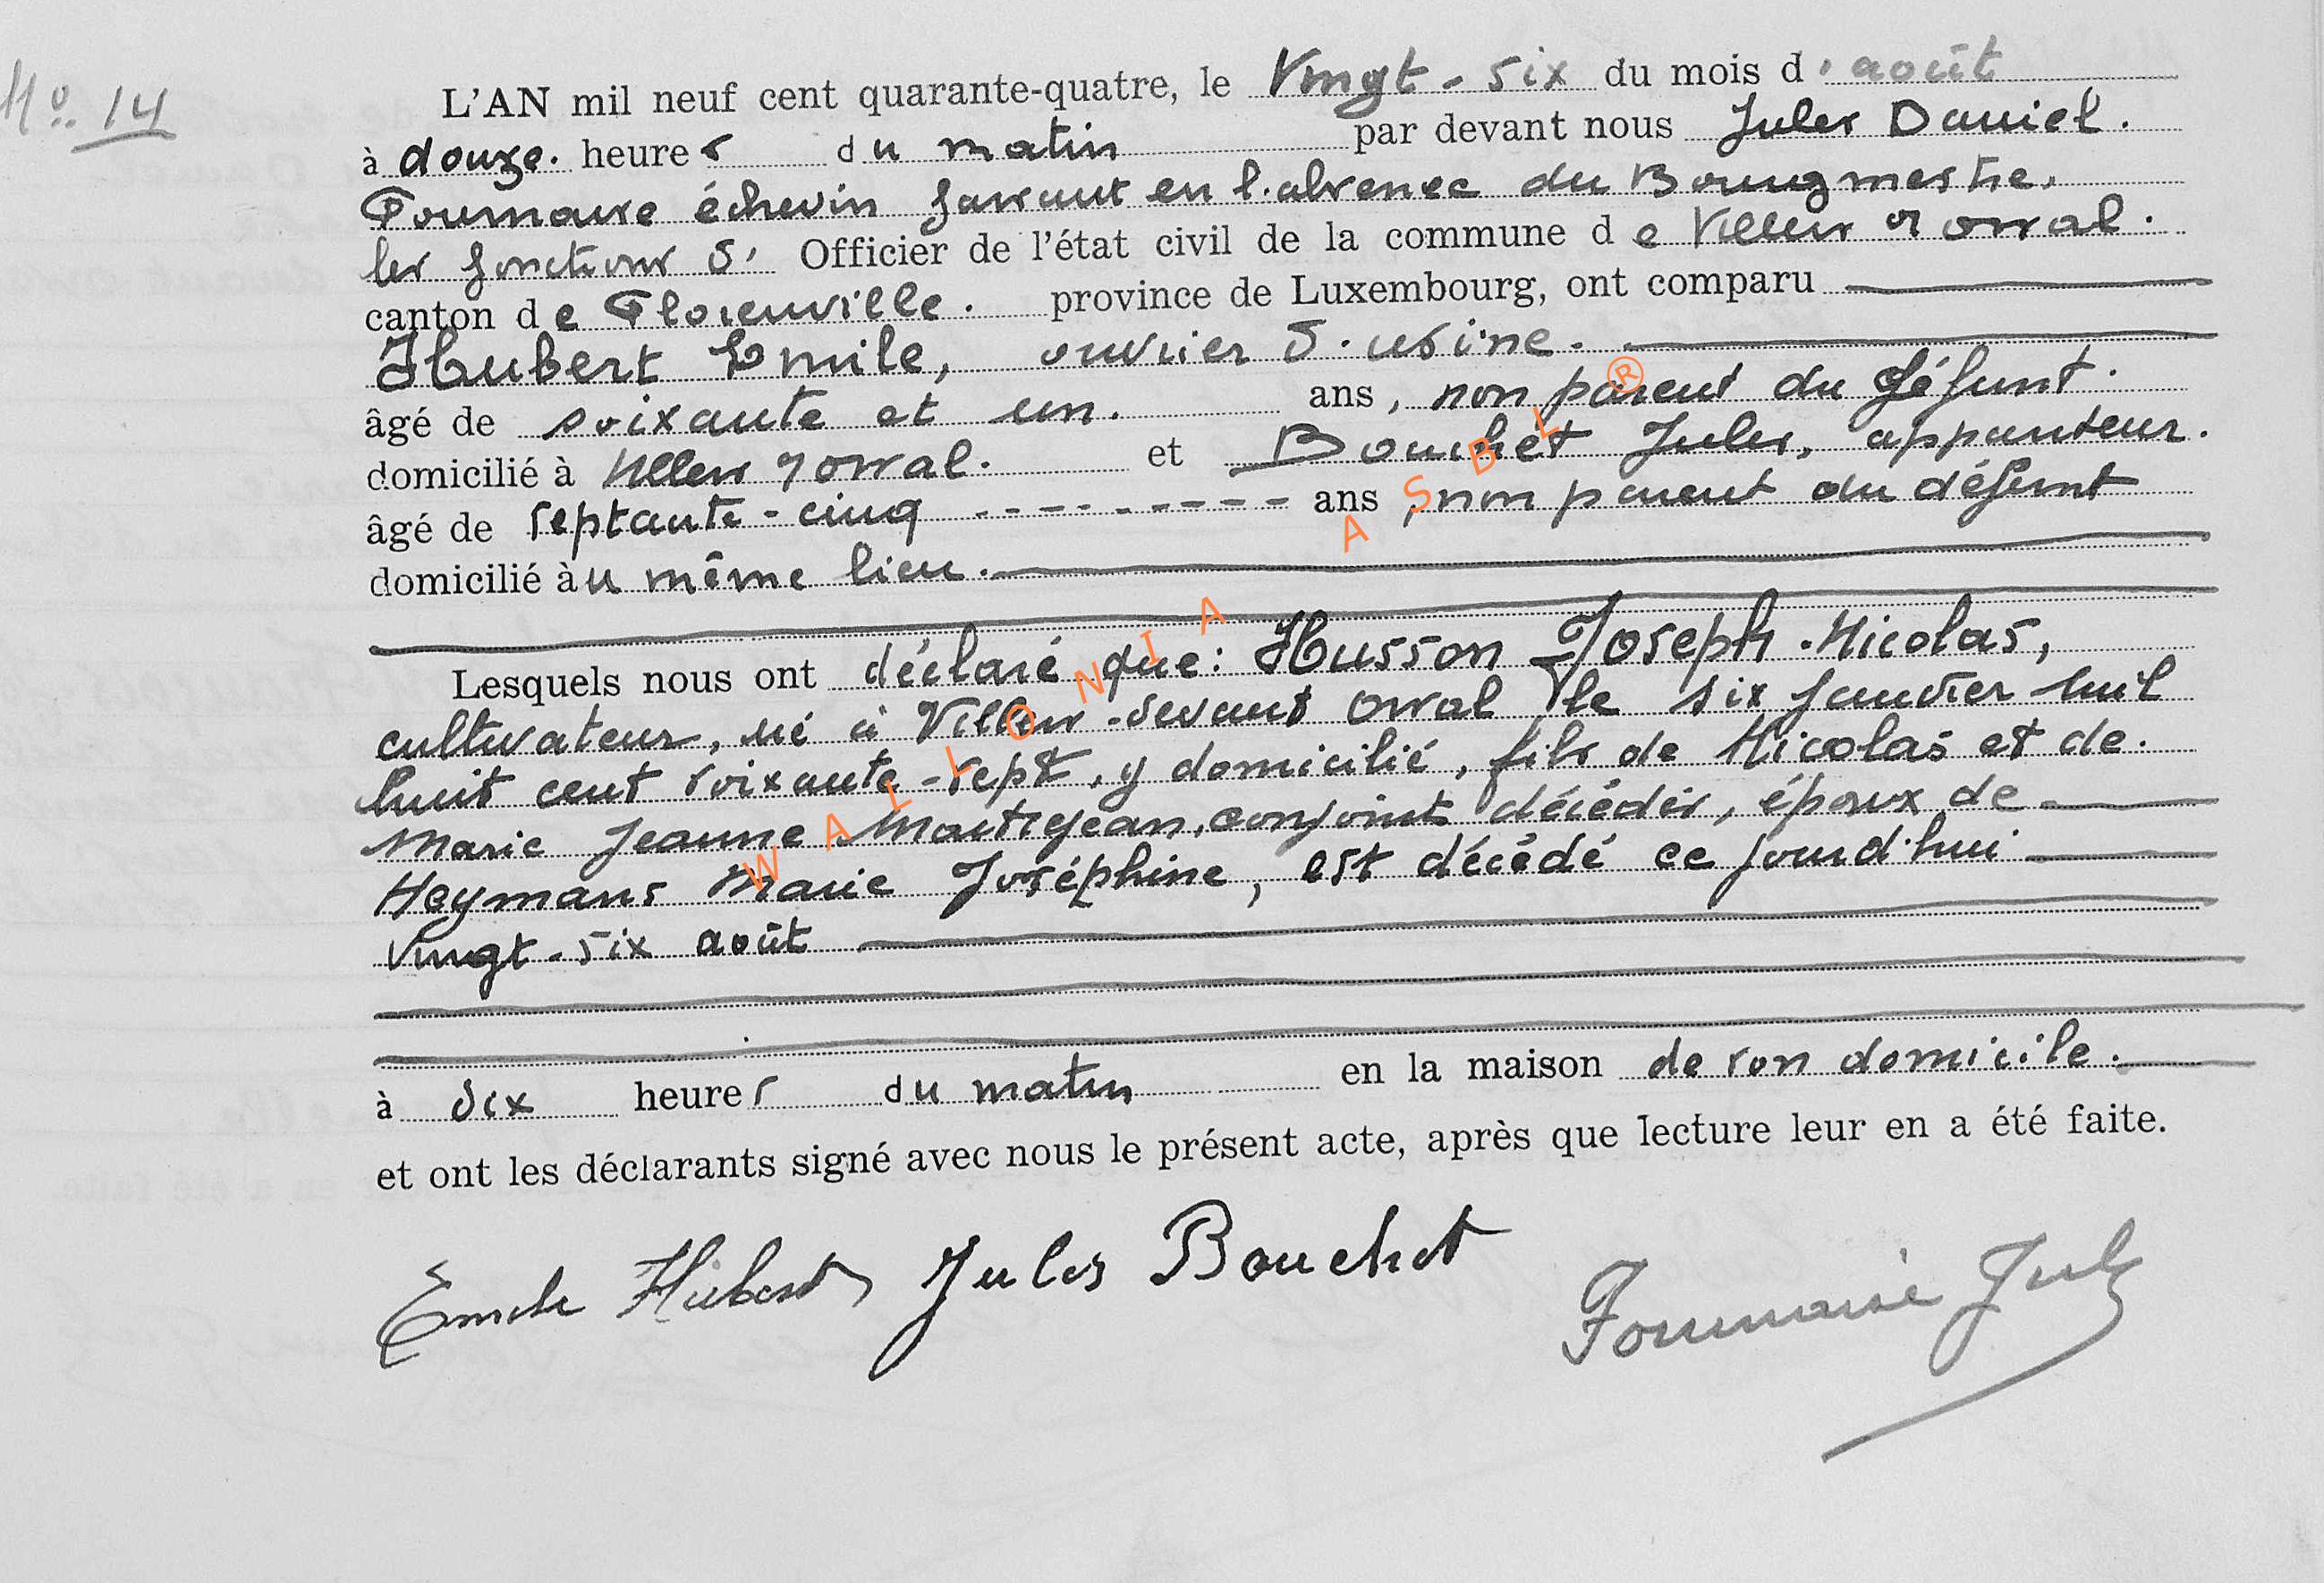 No. 14
L'AN mil neuf cent quarante-quatre, le Vingt-six du mois d'août
à douze. heures du matin par devant nous Jules Daniel.
Fournaire échevin faisant en l'absence du Bourgmestre.
les fonctions d' Officier de l'état civil de la commune de Villers d'orval.
canton de Florenville. province de Luxembourg, ont comparu
Hubert Emile, ouvrier d'usine.
âgé de soixante et un. ans, non parent du défunt.
domicilié à Villers d'orval. et Bouchet Jules, appariteur.
âgé de septante-cinq --------- ans, non parent du défunt
domicilié àu même lieu.
Lesquels nous ont déclaré que: Husson Joseph-Nicolas,
cultivateur, né à Villers-devant Orval le six janvier mil
huit cent soixante-sept, y domicilié, fils de Nicolas et de.
Marie Jeanne Martrejean, conjoints décédés, époux de
Heymans Marie Joséphine, est décédé ce jourd'hui
vingt-six août
à dix heures du matin en la maison de son domicile.
et ont les déclarants signé avec nous le présent acte, après que lecture leur en a été faite.
Emile Hubert Jules Bouchet Fournaire Jules
WALLONIA ASBL ®